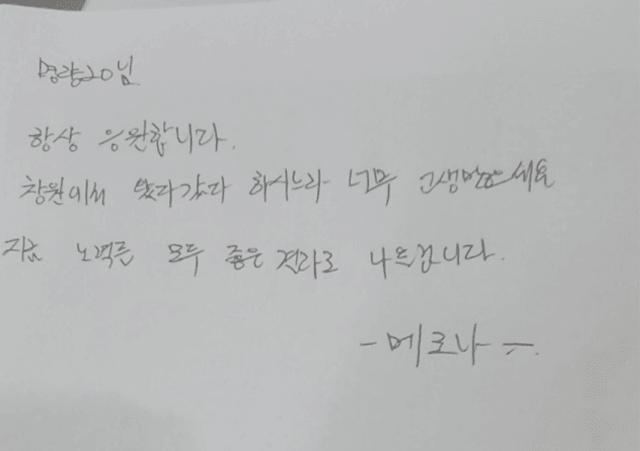 명량20님
항상 응원합니다.
창원에서 왔다갔다 하시느라 너무 고생많으세요
지금 노력은 모두 좋은 결과로 나올겁니다.
- 메로나 -